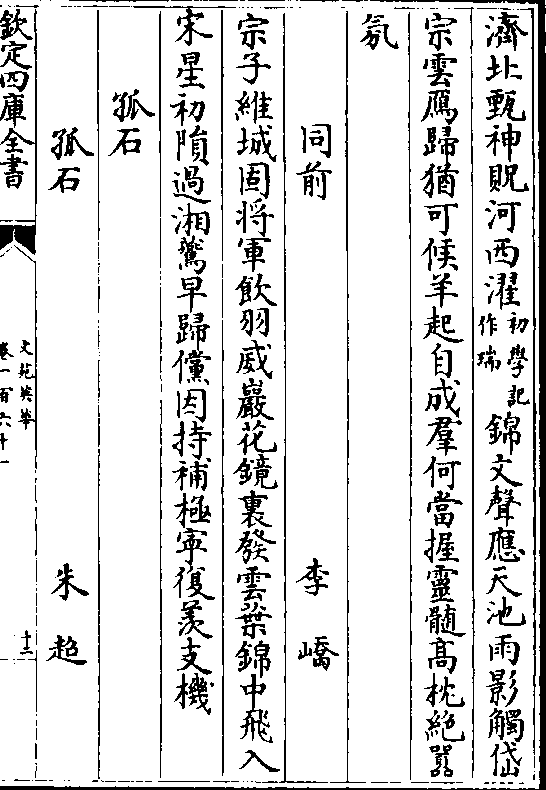 濟北甄神貺河西濯初學記作瑞錦文聲應天池雨影觸岱
宗雲鴈歸猶可候羊起自成羣何當握靈髓高枕絶嚣
氛
同前 李嶠
宗子維城固將軍飲羽威巖花鏡裏發雲葉錦中飛入
宋星初隕過湘鷰早歸儻因持補極寜復羡支機
孤石
孤石 朱超
欽定四庫全書
文苑英華
卷一百六十一
十三